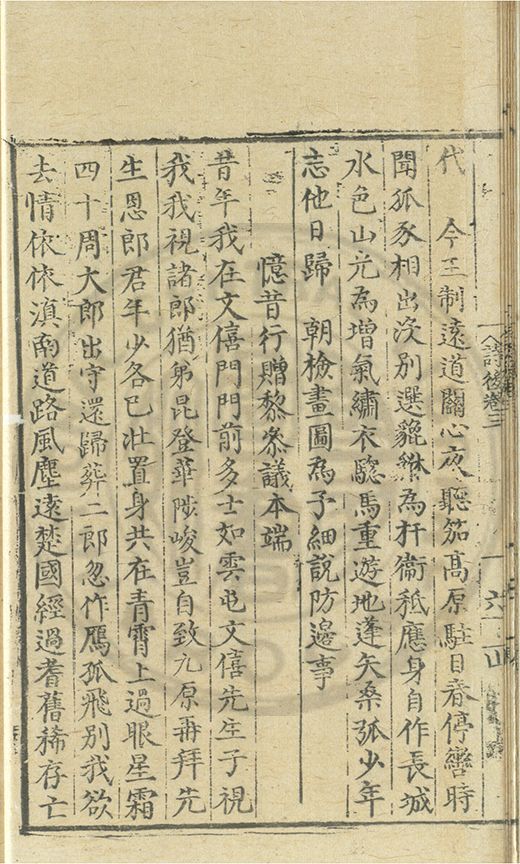 代　今王制遠道關心夜聽笳髙原駐目春停轡時
聞狐豕相出沒別選貔貅為扞衞秪應身自作長城
水色山光為增氣繡衣驄馬重遊地蓬矢桑弧少年
志他日歸　朝檢畫圖為子細說防邊事
憶昔行贈黎叅議本端
昔年我在文僖門門前多士如雲屯文僖先生子視
我我視諸郎猶弟昆登華陟峻豈自致九原再拜先
生恩郎君年少各已壯置身共在青霄上過眼星霜
四十周大郎出守還歸葬二郎忽作鴈孤飛別我欲
去情依依滇南道路風塵遠楚國經過耆舊稀存亡
詩後卷三
六
山